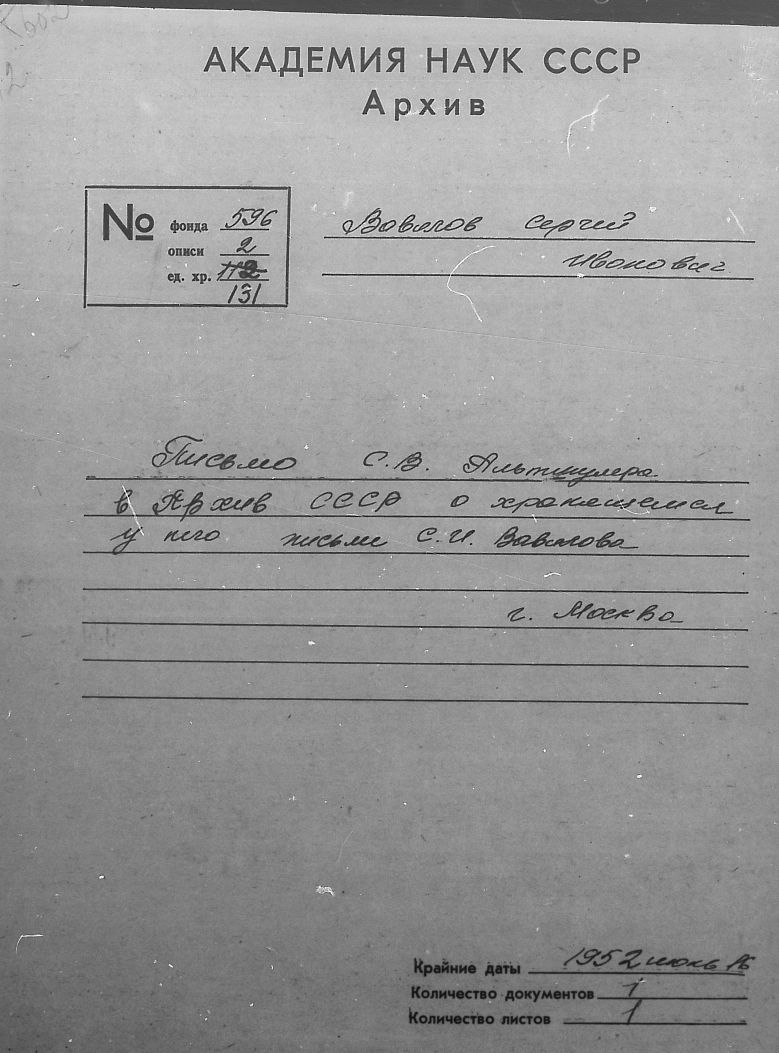 АКАДЕМИЯ НАУК СССР
Архив
№ фонда 596
описи 2
ед. хр. 112
131
Вавилов Сергей
Иванович
Письмо С.В. Альтшулера
в Архив СССР о хранящемся
у него письме С.И. Вавилова
г. Москва
Крайние даты 1952 июнь 16
Количество документов 1
Количество листов 1